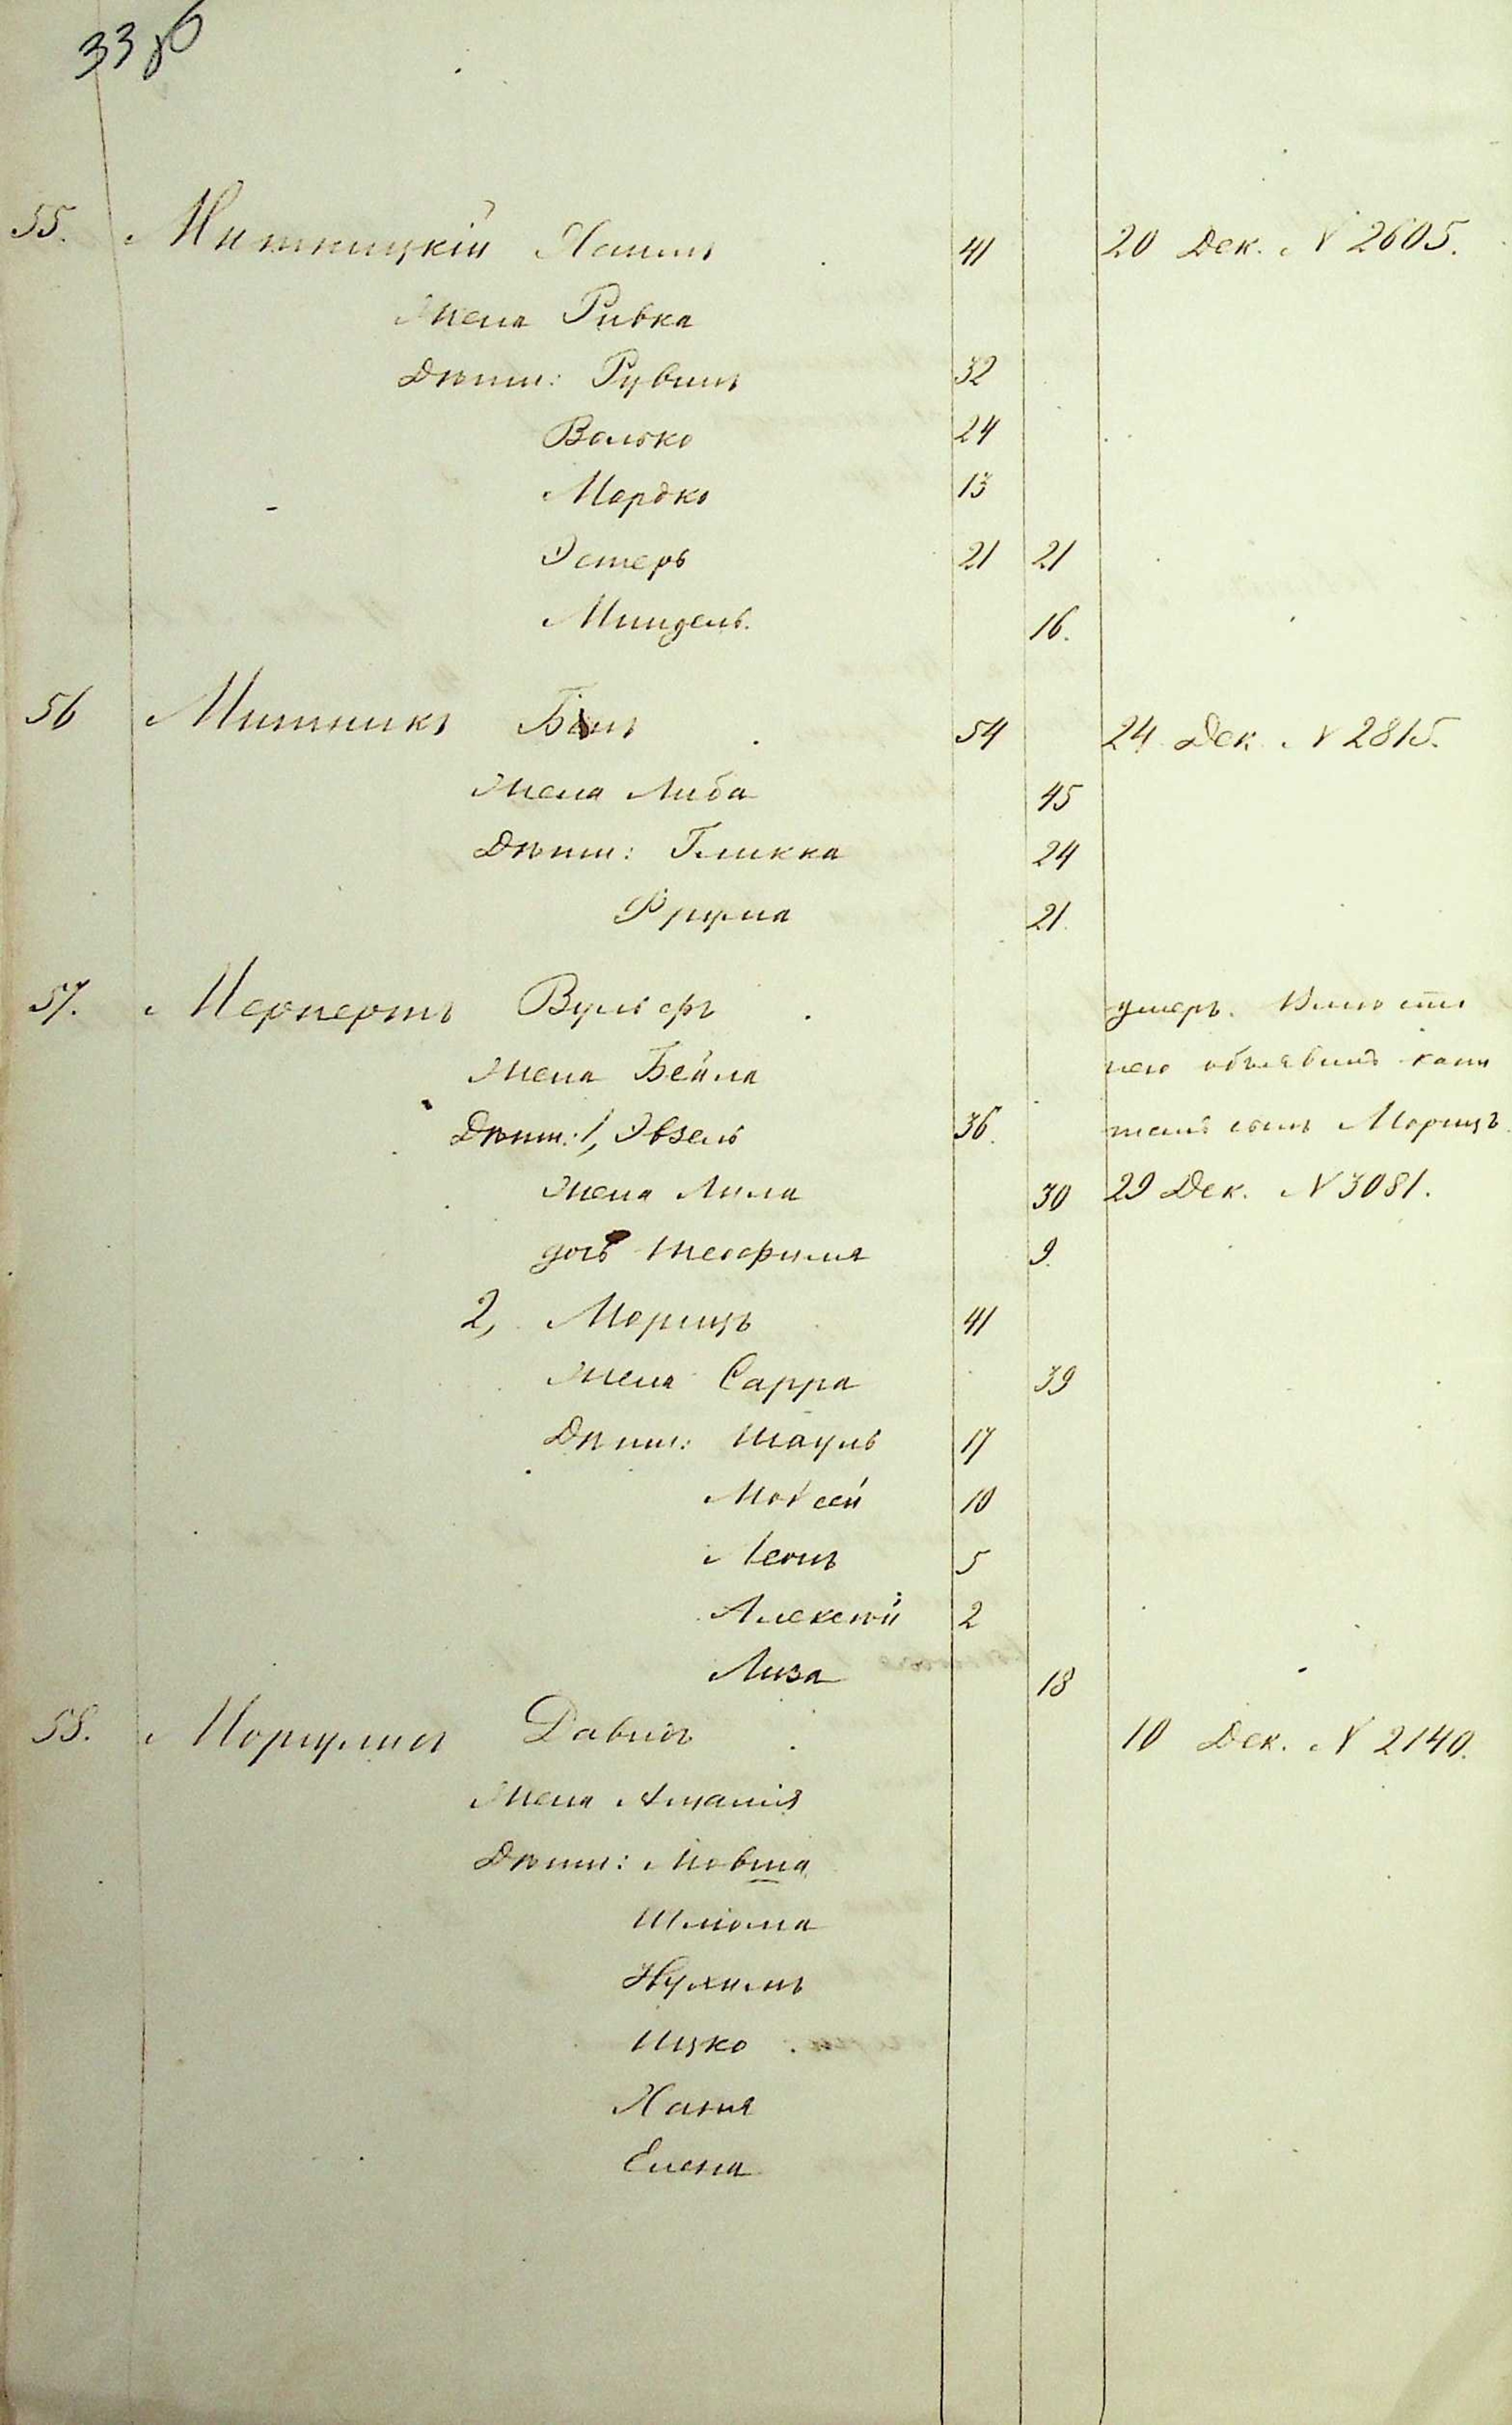 33 об
55. Митницкій Хаимъ 41 20 Дек. № 2605.
Жена Ривка
Дѣти: Рувинъ 32
Волько 24
Мордко 13
Эстеръ 21 21
Миндель. 16.
56 Митникъ 54 24 Дек. № 2815.
Жена Либа 45
Дѣти: Гликка 24
Фрума 21.
57. Мерпертъ Вульфъ умеръ. Вмѣсто
Жена Бейла него объявилъ капи
Дѣти: 1, Эвзель 36. талъ сынъ Морицъ
Жена Лина 30 29 Дек. № 3081.
дочь Теофилия 9.
2, Морицъ 41
Жена Сарра 39
Дѣти: Шауль 17
Мойсей 10
Леонъ 5
Алексѣй 2
Лиза 18
58. Моргулисъ Давидъ 10 Дек. № 2140.
Жена Амалія
Дѣти: Мовша
Шліома
Нухимъ
Ицко
Ханя
Елена